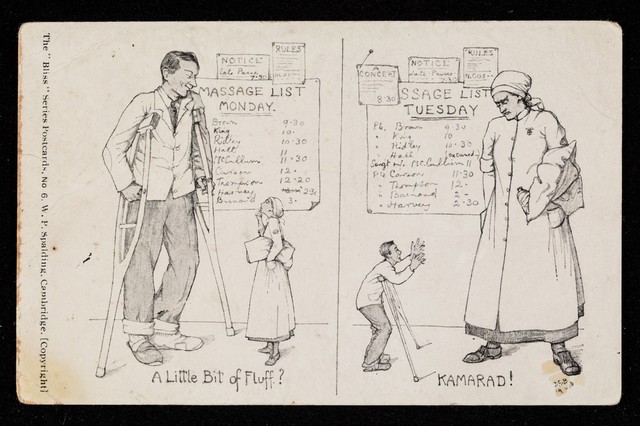 The "Bliss" Series Postcards, No 6. W. P. Spalding, Cambridge. [Copyright]
NOTICE
Late Passes
7.30
RULES
MASSAGE LIST
MONDAY.
Brown 9.30
King 10.
Ridley 10.30
Hall 11
McCullum 11.30
Carson 12.
Thompson 12.20
Harvey 2.30
3.
A Little Bit of Fluff.?
A
CONCERT
8.30
NOTICE
Late Passes
7.30
RULES
N.C.O's
SSAGE LIST
TUESDAY
Pte. Brown 9.30
" King 10
" Ridley 10.30
" Hall excused
Sergt McCullum 11
Pte Carson 11.30
" Thompson 12.
" Barnard 2
" Harvey 2.30
KAMARAD!